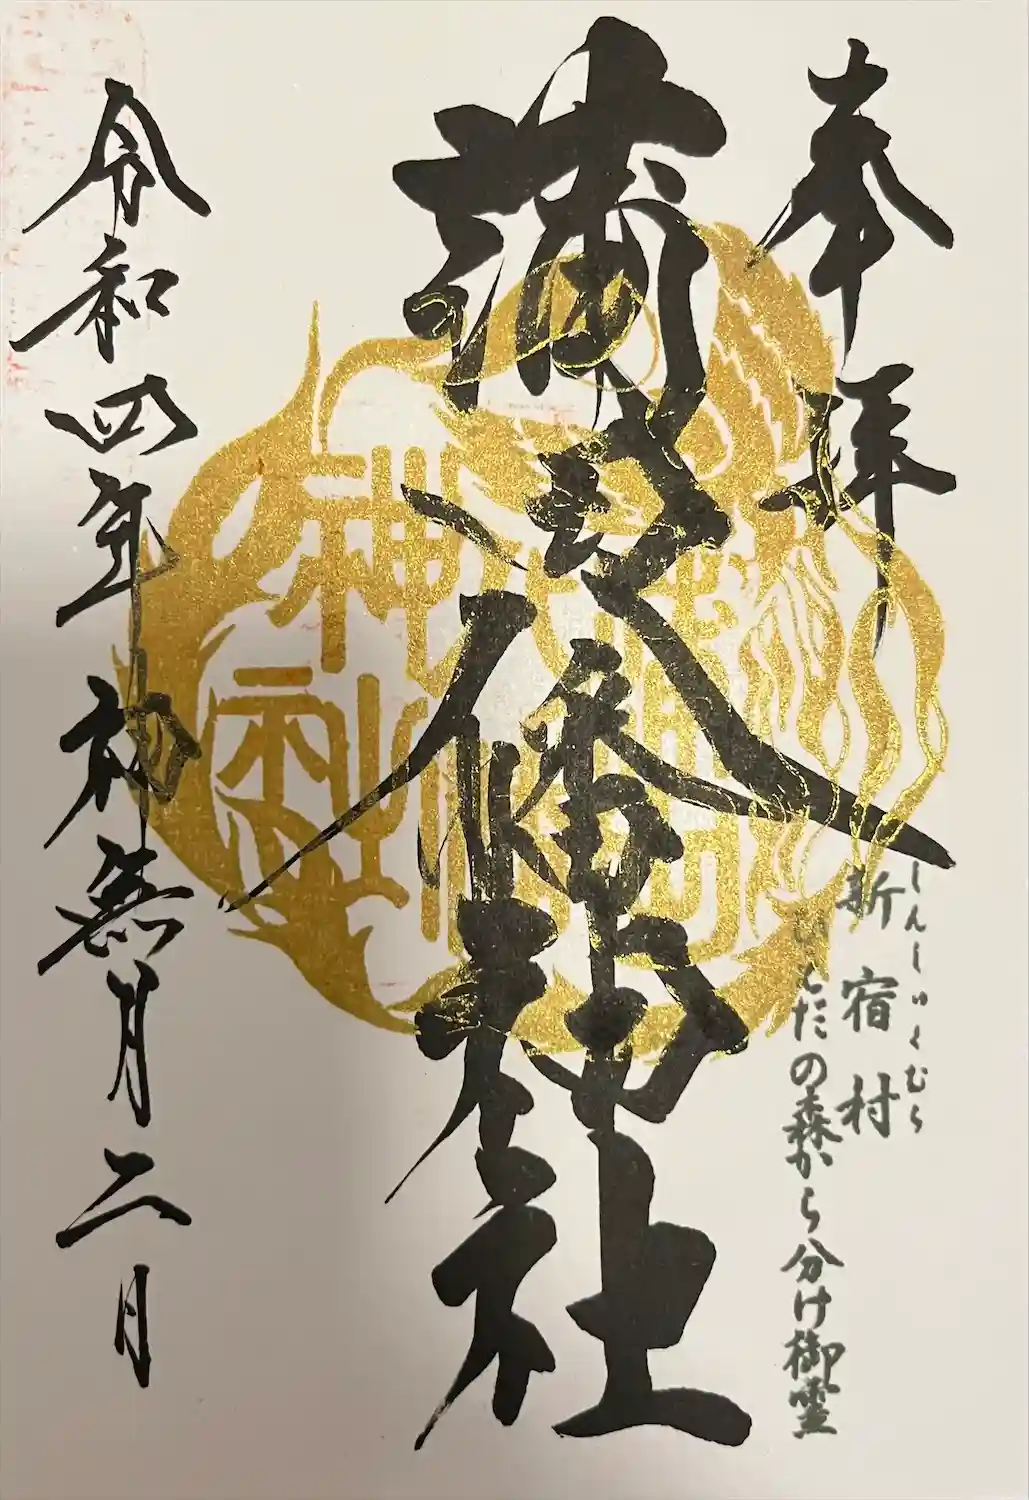 奉拝
新宿村
しんしゅくむら
んだの森から分け御霊
蒲田八幡神社
令和四年神無月二日